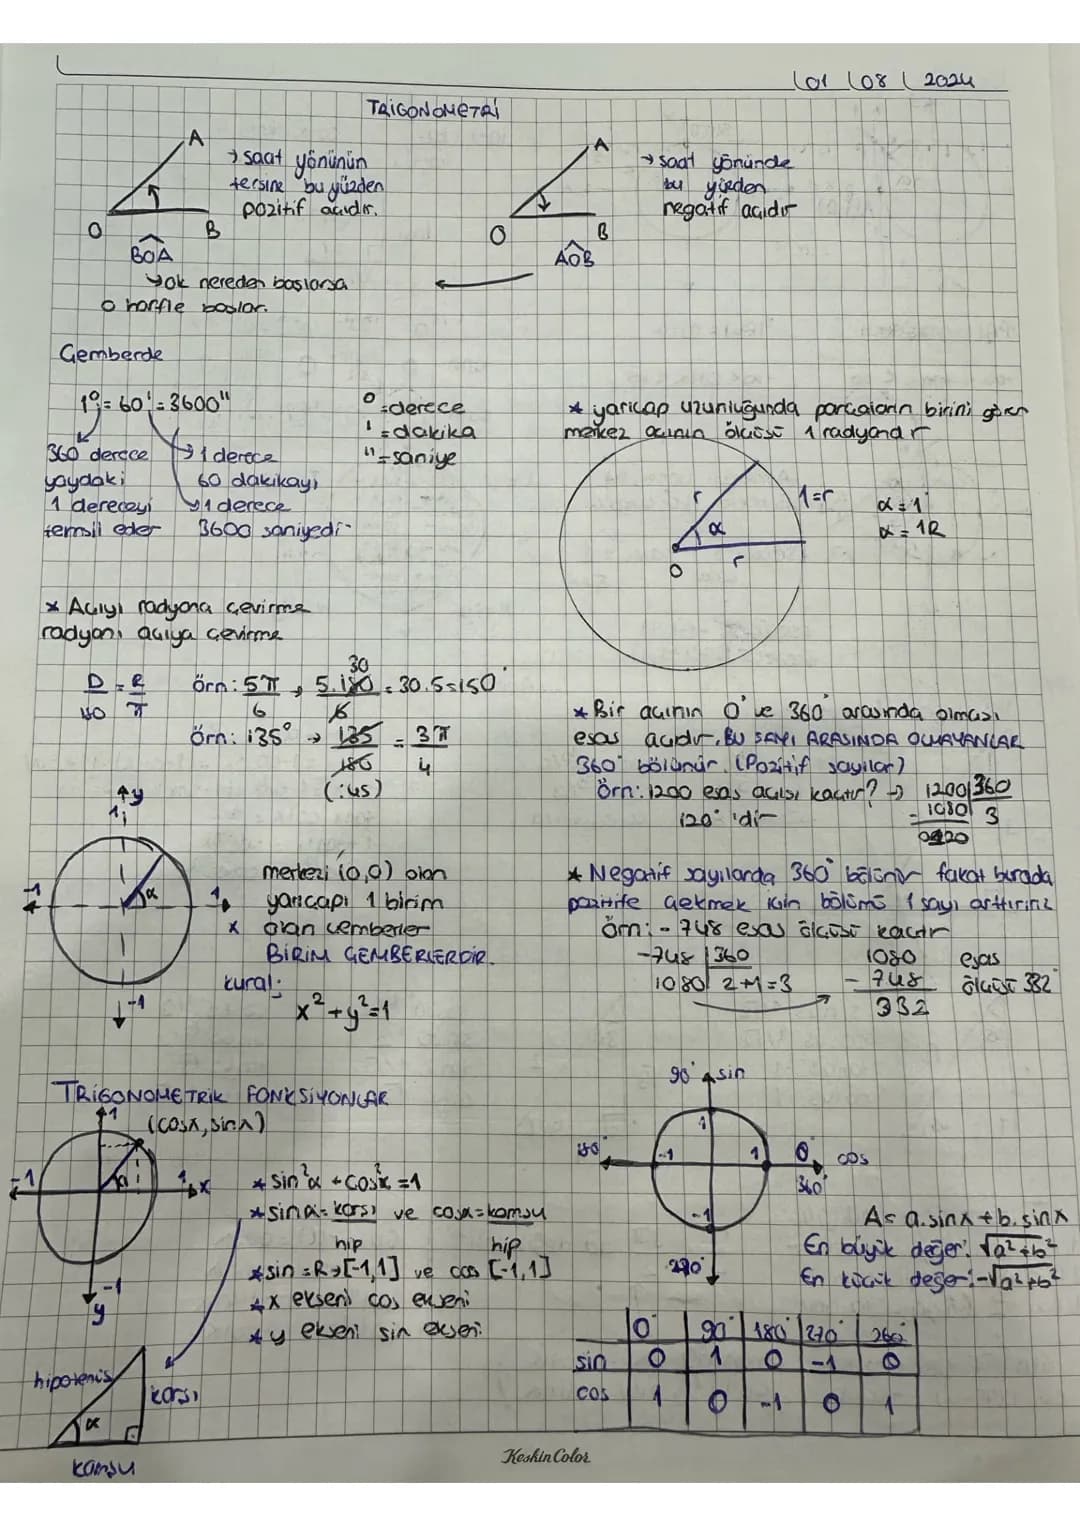 01 08 2024
TRİGONOMETRİ
A
O
B
→ saat yönünün
tersine bu yüzden
pozitif açıdır.
BOA
→ ok nereden başlarsa
o harfle başlar.
A
O
B
→ saat yönünde
bu yüzden
negatif açıdır
AOB
Çemberde
1° = 60' = 3600"
360 derece
yaydaki
1 dereceyi
temsil eder
→ 1 derece
60 dakikayı
→ 1 derece
3600 saniyedir
° = derece
' = dakika
" = saniye
* yarıçap uzunluğunda parçaların birini gören
merkez açının ölçüsü 1 radyandır
r
α
r
O
1=r
α = 1
α = 1R
* Açıyı radyana çevirme
radyanı açıya çevirme
D/180 = R/π
örn: 5π/6 , 5.180/6 = 30.5=150°
30
örn: 135° → 135/180 = 3π/4
(:45)
* Bir açının 0° ve 360° arasında olması
esas açıdır. BU SAYI ARASINDA OLMAYANLAR
360° bölünür. (Pozitif sayılar)
Örn: 1200 esas açısı kaçtır? →
120° 'dir
1200 | 360
- 1080 3
0120
y
1
-1
α
1
x
-1
merkezi (0,0) olan
yarıçapı 1 birim
olan çemberler
BİRİM ÇEMBERLERDİR.
kural:
x²+y²=1
* Negatif sayılarda 360° bölünür fakat burada
pozitife çekmek için bölümü 1 sayı arttırırız
örn: - 748 esas ölçüsü kaçtır
-748 | 360
1080 2+1=3
1080
- 748
332
esas
ölçüsü 332
TRİGONOMETRİK FONKSİYONLAR
1
(cosx, sinx)
-1
α
1
x
-1
y
* sin²α + cos²x = 1
* sinα = karşı/hip ve cosα = komşu/hip
* sin = R→[-1,1] ve cos [-1,1]
* x ekseni cos ekseni
* y ekseni sin ekseni
hipotenüs
karşı
α
komşu
90° sin
180°
1
-1
1
0°
cos
360°
-1
270°
A = a.sinx + b.sinx
En büyük değer: √a²+b²
En küçük değer: -√a²+b²
0° 90° 180° 270° 360°
sin 0 1 0 -1 0
cos 1 0 -1 0 1
KeskinColor